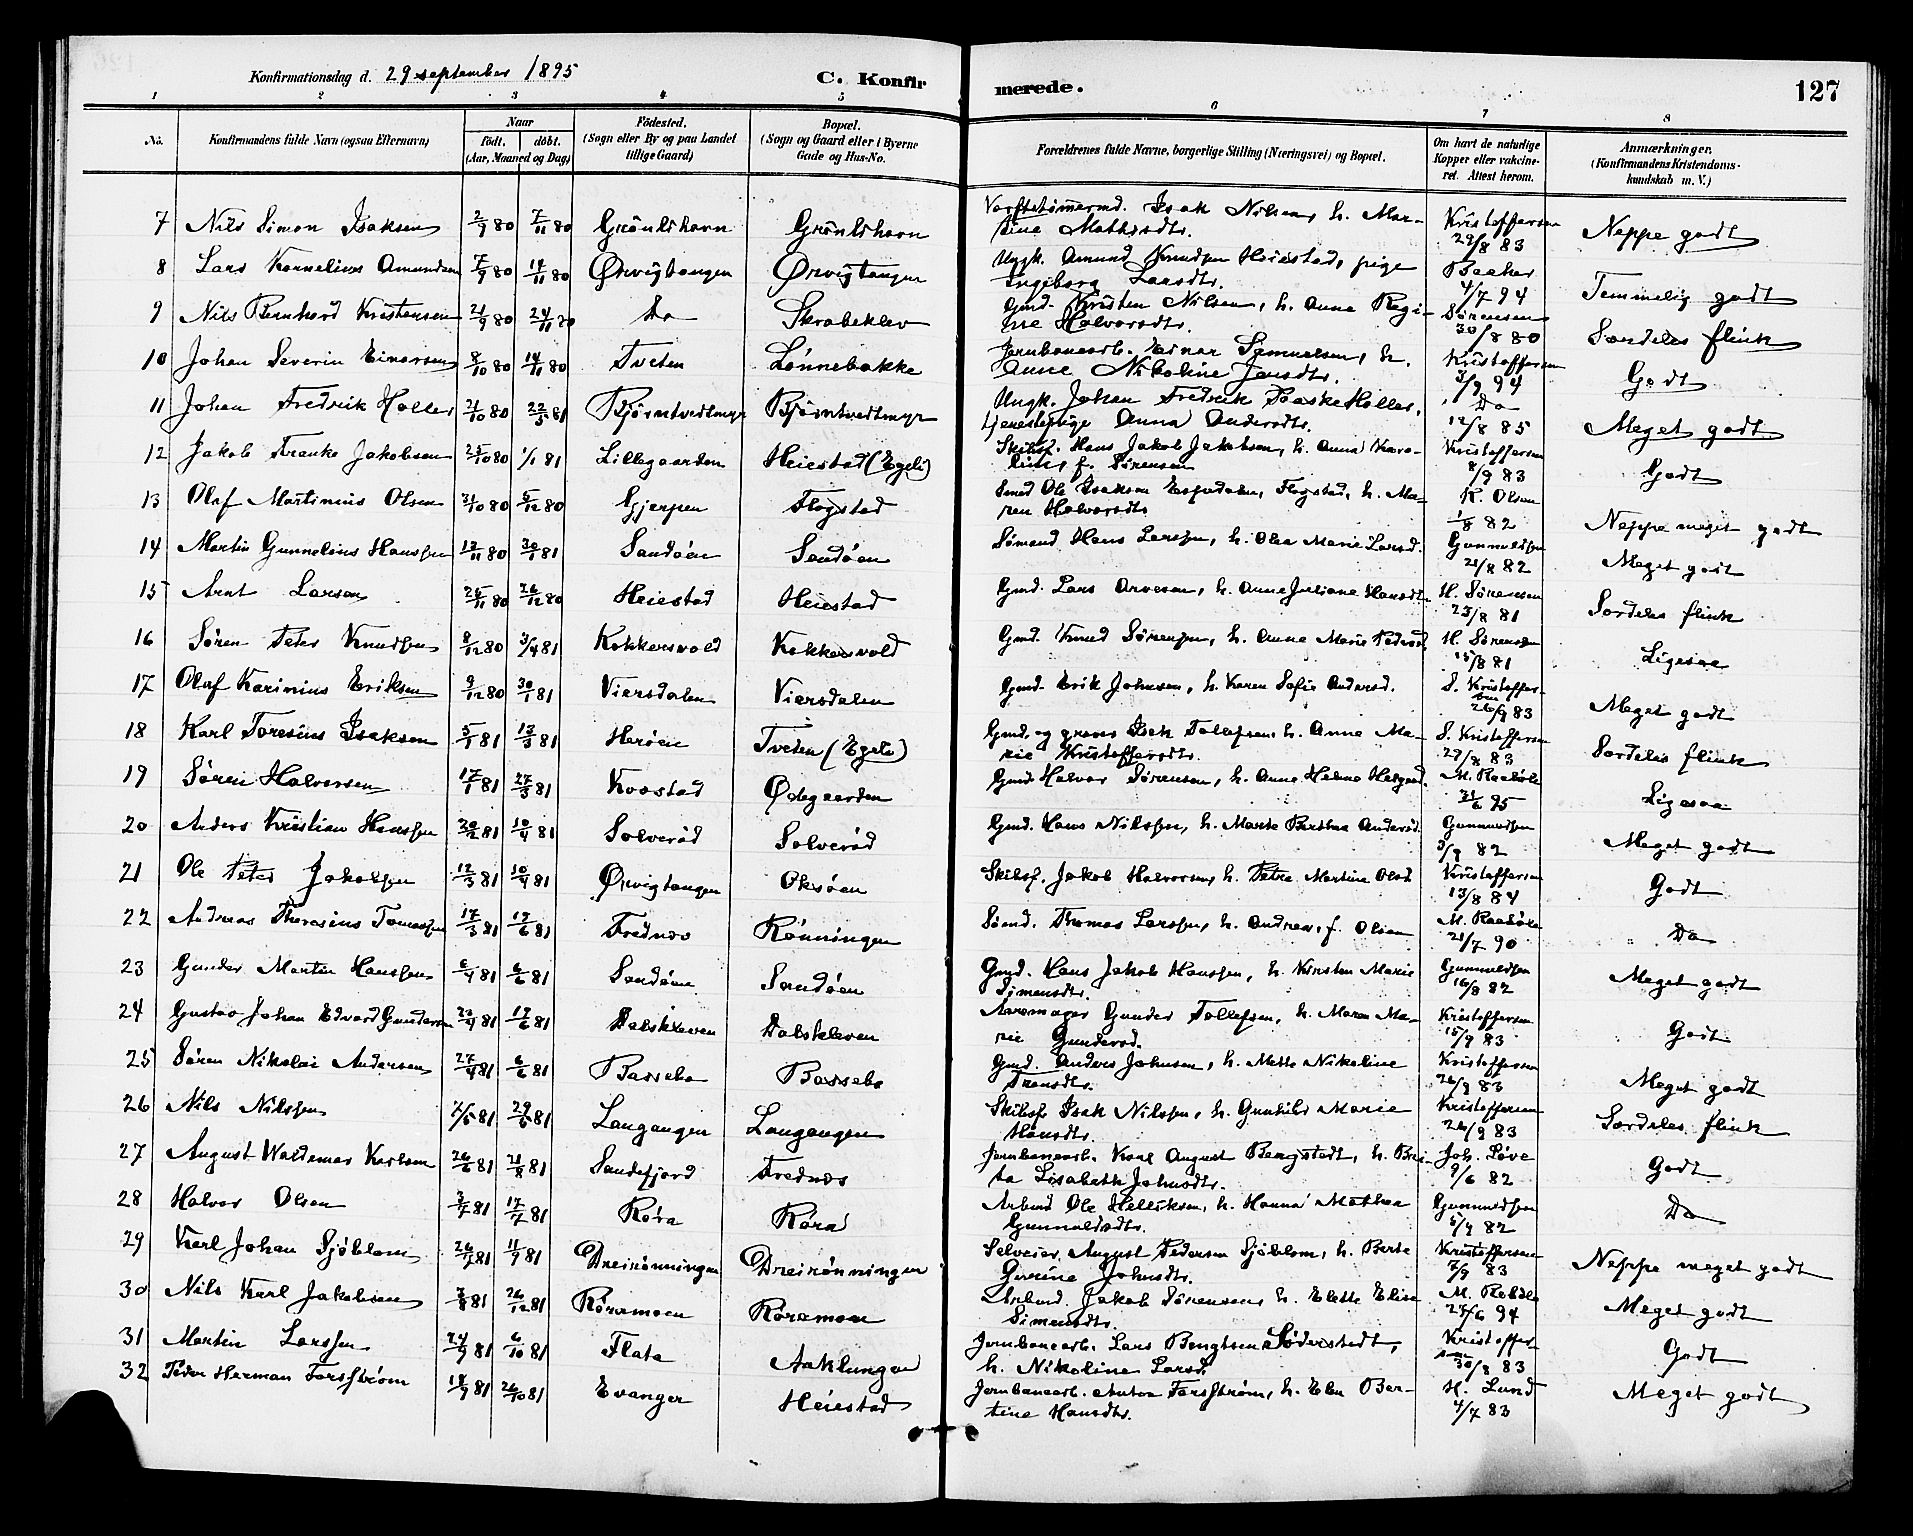 Konfirmationsdag d. 29 september 1895 C. Konfirmerede. 127
1 2 3 4 5 6 7 8
No. Konfirmandens fulde Navn (ogsaa Efternavn) Naar født, døbt. (Aar, Maaned og Dag) Fødested. (Sogn eller By og paa Landet tillige Gaard) Bopæl. (Sogn og Gaard eller i Byerne Gade og Hus-No. Forældrenes fulde Navne, borgerlige Stilling (Næringsvei) og Bopæl. Om havt de naturlige Kopper eller vakcineret. Attest herom. Anmærkninger. (Konfirmandens Kristendomskundskab m. V.)
7 Nils Simon Isaksen 2/9 80 7/11 80 Grönlihavn Grönlihavn Isak Nilsen, h. Martine Mathisdtr. Kristoffersen 29/8 83 Neppe godt
8 Lars Kornelius Amundsen 7/9 80 14/11 80 Ørvigtangen Ørvigtangen Ungk. Amund Knudsen Heiestad, pige Ingeborg Larsdtr. Baaker 4/7 94 Temmelig godt
9 Nils Bernhard Kristensen 21/9 80 24/11 80 Do Skrabeklev Gmd. Kristen Nilsen, h. Anne Regine Halvorsdtr. Sørensen 30/8 80 Særdeles flink
10 Johan Severin Einarsen 8/10 80 14/11 80 Tveten Lønnebakke Jernbanearb. Einar Samuelsen, h. Anne Nikoline Jensdtr. Kristoffersen 3/9 94 Godt
11 Johan Fredrik Holler 21/10 80 22/5 81 Bjørntvedtmyr Bjørntvedtmyr Ungk. Johan Fredrik Paaske Holler, tjenestepige Anna Andersdtr. Do 12/8 85 Meget godt
12 Jakob Franke Jakobsen 25/10 80 1/1 81 Lillegaarden Heiestad (Egeli) Skibsf. Hans Jakob Jakobsen, h. Anna Karoline, f. Sørensen Kristoffersen 8/9 83 Godt
13 Olaf Martinius Olsen 31/10 80 5/12 80 Gjerpen Flogstad Smed Ole Isaksen Espedalen, Flogstad, h. Maren Halvorsdtr. K. Olsen 1/8 82 Neppe meget godt
14 Martin Gunnelius Hanssen 12/11 80 30/1 81 Sandøen Sandøen Sømand Hans Larssen, h. Olea Marie Larsd. Gunnuldsen 21/8 82 Meget godt
15 Arnt Larsen 25/11 80 26/12 80 Heiestad Heiestad Gmd. Lars Arvesen, h. Anne Juliane Hansdtr. H. Sørensen 23/8 81 Særdeles flink
16 Søren Peter Knudsen 8/12 80 3/4 81 Kokkersvold Kokkersvold Gmd. Knud Sørensen, h. Anne Marie Pedersd. H. Sørensen 15/8 81 Ligesaa
17 Olaf Karinius Eriksen 9/12 80 30/1 81 Viersdalen Viersdalen Gmd. Erik Johnsen, h. Karen Sofie Andersd. S. Kristoffersen 26/9 83 Meget godt
18 Karl Toresius Isaksen 5/1 81 13/3 81 Herøen Tveten (Egeli) Gmd. og graver Isak Tollefsen, h. Anne Marie Kristoffersdtr. S. Kristoffersen 29/8 83 Særdeles flink
19 Søren Halvorsen 17/1 81 27/3 81 Kvastad Ødegaarden Gmd. Halvor Sørensen, h. Anne Helene M. Raabøle 31/6 95 Ligesaa
20 Anders Kristian Hanssen 20/2 81 10/4 81 Solverød Solverød Gmd. Hans Nilssen, h. Marte Berthea Andersd. Gunnuldsen 3/9 82 Meget godt
21 Ole Peter Jakobsen 12/3 81 10/4 81 Ørvigtangen Oksøen Skibsf. Jakob Halvorsen, h. Petra Martine Olsd. Kristoffersen 13/8 84 Godt
22 Andreas Theresius Tomassen 17/3 81 12/6 81 Frednes Rønningen Sømd. Thomas Larssen, h. Andrea, f. Olsen M. Raabøle 21/7 90 Do
23 Gunder Martin Hanssen 6/4 81 6/6 81 Sandøen Sandøen Gmd. Hans Jakob Hanssen, h. Kirsten Marie Simensdtr. Gunnuldsen 16/8 82 Meget godt
24 Gustav Johan Edvard Gundersen 22/4 81 12/6 81 Dalskleven Dalskleven Aaremager Gunder Tollefsen, h. Maren Marie Gundersd. Kristoffersen 15/9 83 Godt
25 Søren Nikolai Andersen 27/4 81 6/6 81 Bassebo Bassebo Gmd. Anders Johnsen, h. Mette Nikoline Fransdtr. Kristoffersen 26/9 83 Meget godt
26 Nils Nilssen 7/5 81 29/6 81 Langangen Langangen Skibsf. Isak Nilssen, h. Gunhild Marie Hansdtr. Kristoffersen 26/9 83 Særdeles flink
27 August Waldemar Karlsen 26/6 81 21/8 81 Sandefjord Frednes Jernbanearb. Karl August Bengstedt, h. Brita Lisabeth Johnsdtr. Joh. Løve 9/6 82 Godt
28 Halvor Olsen 3/7 81 17/7 81 Røra Røra Arbmd Ole Helliksen, h. Hanna Mathea Gunnuldsdtr. Gunnuldsen 5/9 82 Do
29 Karl Johan Sjøblom 26/7 81 11/9 81 Dreirønningen Dreirønningen Selveier August Pedersen Sjøblom, h. Berte Gurine Johnsdtr. Kristoffersen 7/9 83 Neppe meget godt
30 Nils Karl Jakobsen 3/8 81 26/12 81 Røramoen Røramoen Arbmd. Jakob Sørensen, h. Elette Elise Simensdtr. M. Rabøle 24/6 94 Meget godt
31 Martin Larssen 24/9 81 6/10 81 Flata Aaklungen Jernbanearb. Lars Bengtsen Söderstedt, h. Nikoline Larsd. Kristoffersen 30/8 83 Godt
32 Peder Herman Forsstrøm 18/9 81 26/10 81 Evanger Heiestad Jernbanearb. Anton Forsstrøm, h. Elen Bertine Hansdtr. H. Lund 4/7 83 Meget godt